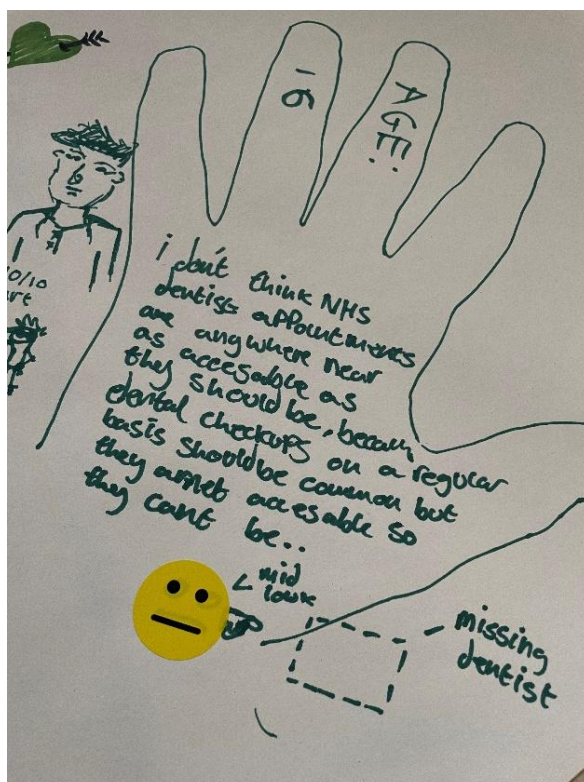 AGE:
16
10/10
i don't think NHS
dentist appointments
are anywhere near
as accesable as
they should be, becaus
dental checkups on a regular
basis should be common but
they arnet accesable so
they cant be..
< mid
missing
dentist